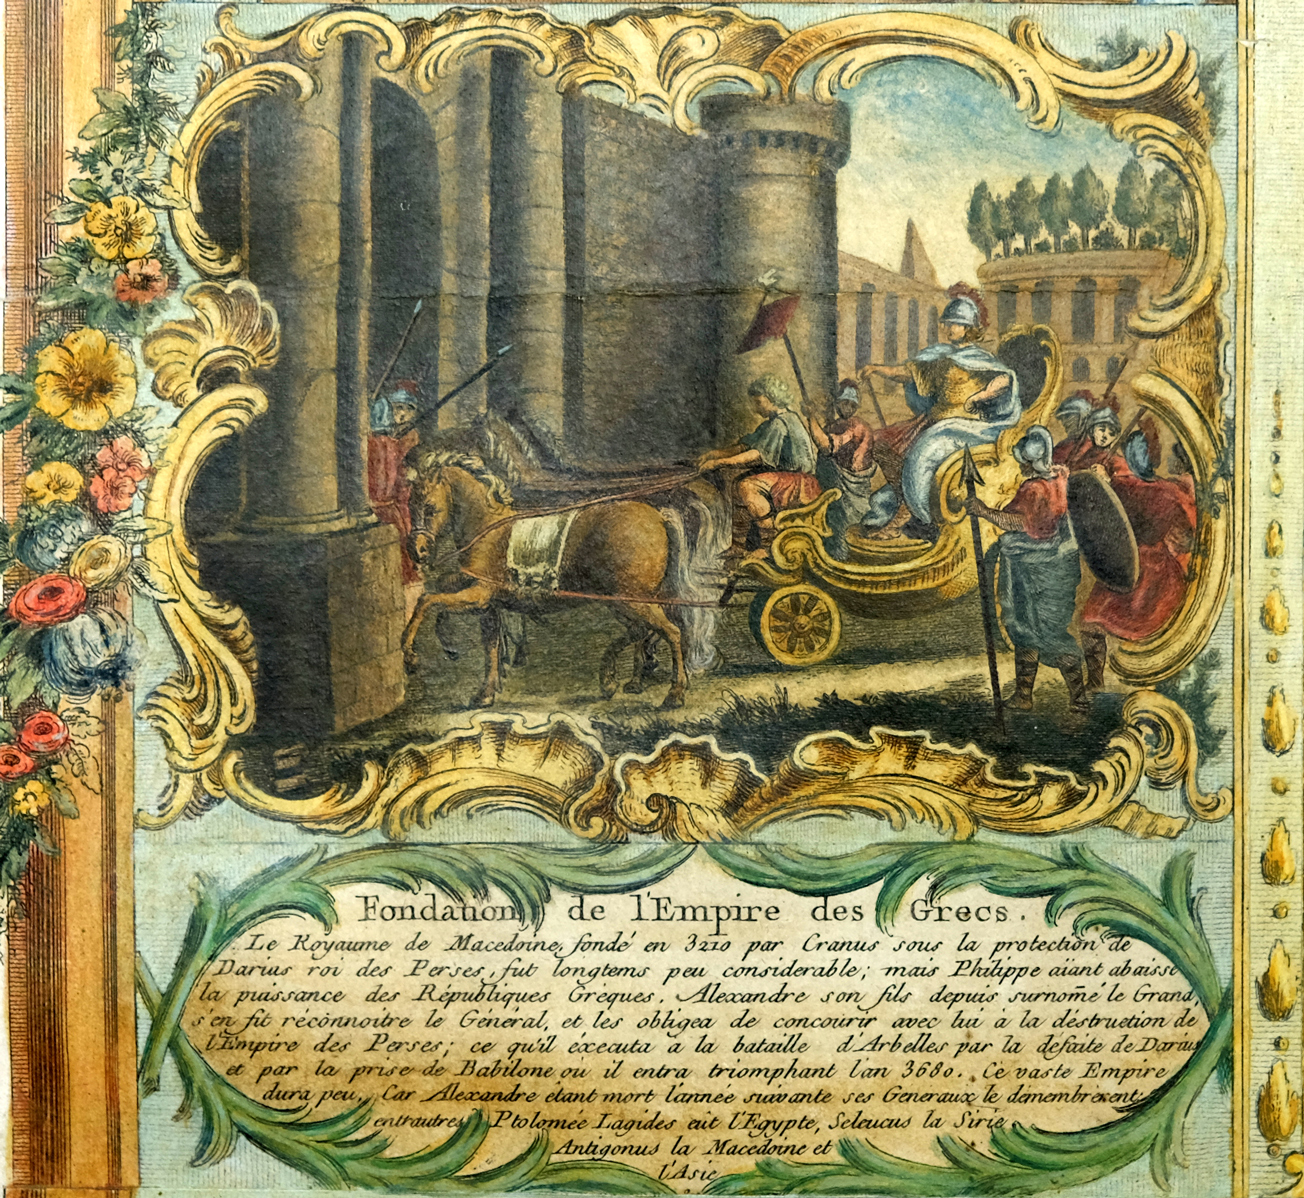 Fondation de l'Empire des Grecs.
Le Royaume de Macedoine, fondé en 3210 par Cranus sous la protection de
Darius roi des Perses, fut longtems peu considerable; mais Philippe aïant abaissé
la puissance des Républiques Grèques. Alexandre son fils depuis surnom̃é le Grand,
s'en fit récònnoitre le Général, et les obligea de concourir avec lui à la déstruction de
l'Empire des Perses; ce qu'il éxecuta a la bataille d'Arbelles par la defaite de Darius
et par la prise de Babilone ou il entra triomphant l'an 3680. Ce vaste Empire
dura peu. Car Alexandre étant mort l'année suivante ses Generaux le démembrerent;
entrautres Ptolomée Lagides eût l'Egypte, Seleucus la Sirie,
Antigonus la Macedoine et
l'Asie